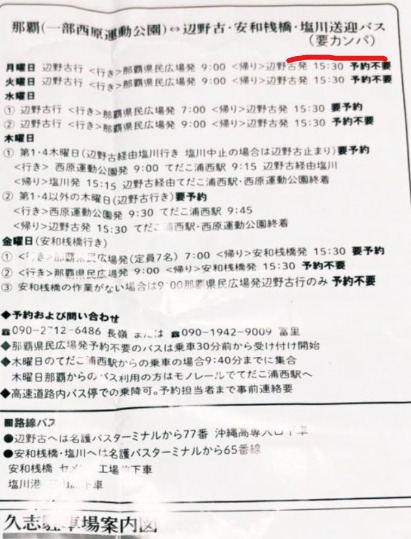 那覇(一部西原運動公園)⇔辺野古・安和桟橋・塩川送迎バス
(要カンパ)
月曜日 辺野古行 <行き>那覇県民広場発 9:00 <帰り>辺野古発 15:30 予約不要
火曜日 辺野古行 <行き>那覇県民広場発 9:00 <帰り>辺野古発 15:30 予約不要
水曜日
① 辺野古行 <行き>那覇県民広場発 7:00 <帰り>辺野古発 15:30 要予約
② 辺野古行 <行き>那覇県民広場発 9:00 <帰り>辺野古発 15:30 予約不要
木曜日
① 第1・4木曜日(辺野古経由塩川行き 塩川中止の場合は辺野古止まり)要予約
<行き> 西原運動公園発 9:00 てだこ浦西駅 9:15 辺野古経由塩川
<帰り>塩川発 15:15 辺野古経由てだこ浦西駅・西原運動公園終着
② 第1・4以外の木曜日(辺野古行き)要予約
<行き> 西原運動公園発 9:30 てだこ浦西駅 9:45
<帰り>辺野古発 15:30 てだこ浦西駅・西原運動公園終着
金曜日(安和桟橋行き)
① <行き>那覇県民広場発(定員7名) 7:00 <帰り>安和桟橋発 15:30 要予約
② <行き>那覇県民広場発 9:00 <帰り>安和桟橋発 15:30 予約不要
③ 安和桟橋の作業がない場合は9:00那覇県民広場発辺野古行のみ 予約不要
◆予約および問い合わせ
☎090-2712-6486 長嶺 または ☎090-1942-9009 富里
◆那覇県民広場発予約不要のバスは乗車30分前から受け付け開始
◆木曜日のてだこ浦西駅からの乗車の場合9:40分までに集合
木曜日那覇からのバス利用の方はモノレールでてだこ浦西駅へ
◆高速道路内バス停での乗降可。予約担当者まで事前連絡要
■路線バス
●辺野古へは名護バスターミナルから77番 沖縄高専入口下車
●安和桟橋・塩川へは名護バスターミナルから65番線
安和桟橋 セメ 工場前下車
塩川港 下車
久志駐車場案内図